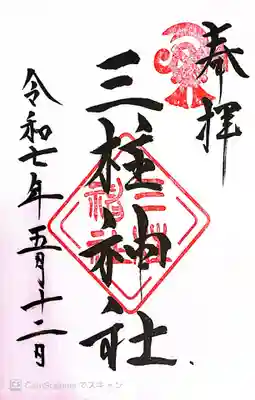 奉拝
三柱神社
令和七年五月十二日
CamScanner でスキャン